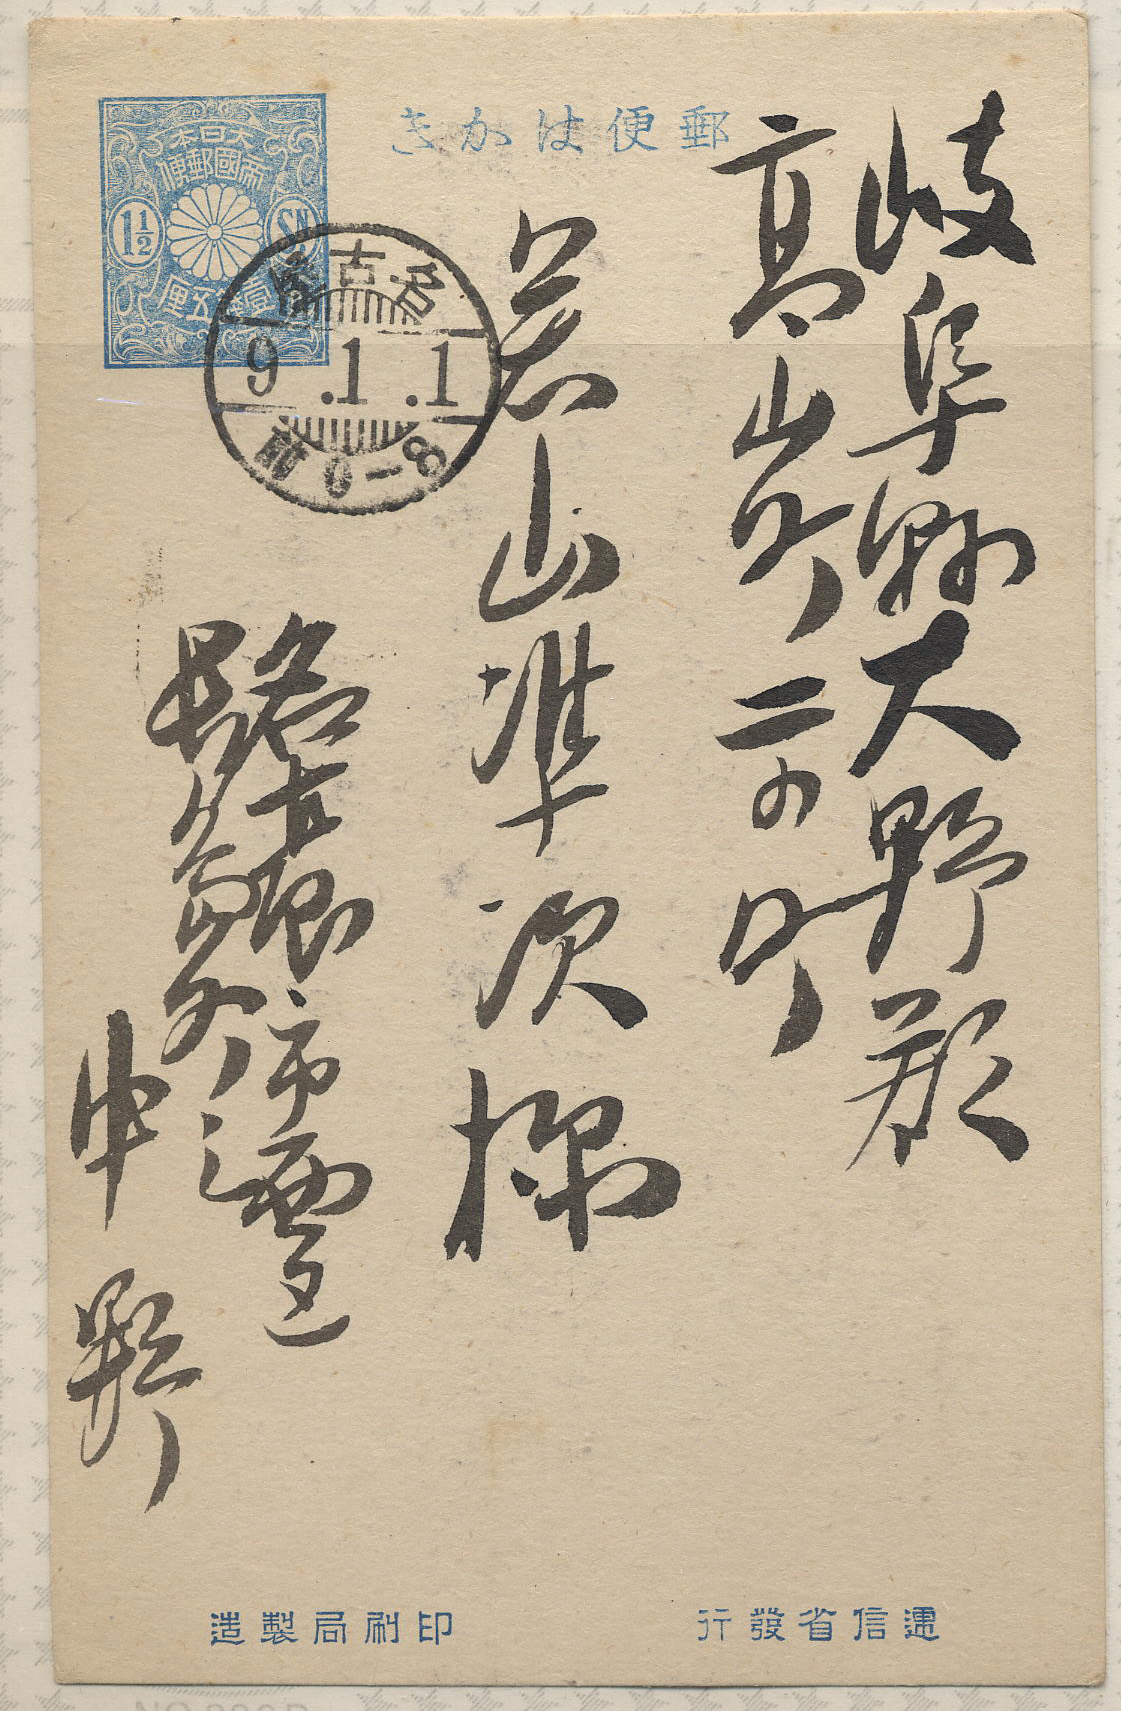 郵便はかき
大日本
帝國郵便
1½ SN
壹錢五厘
名古屋
9.1.1
前0-8
岐阜縣大野郡
高山町二の町
若山準次樣
名古屋市西區
中野
遞信省發行
印刷局製造